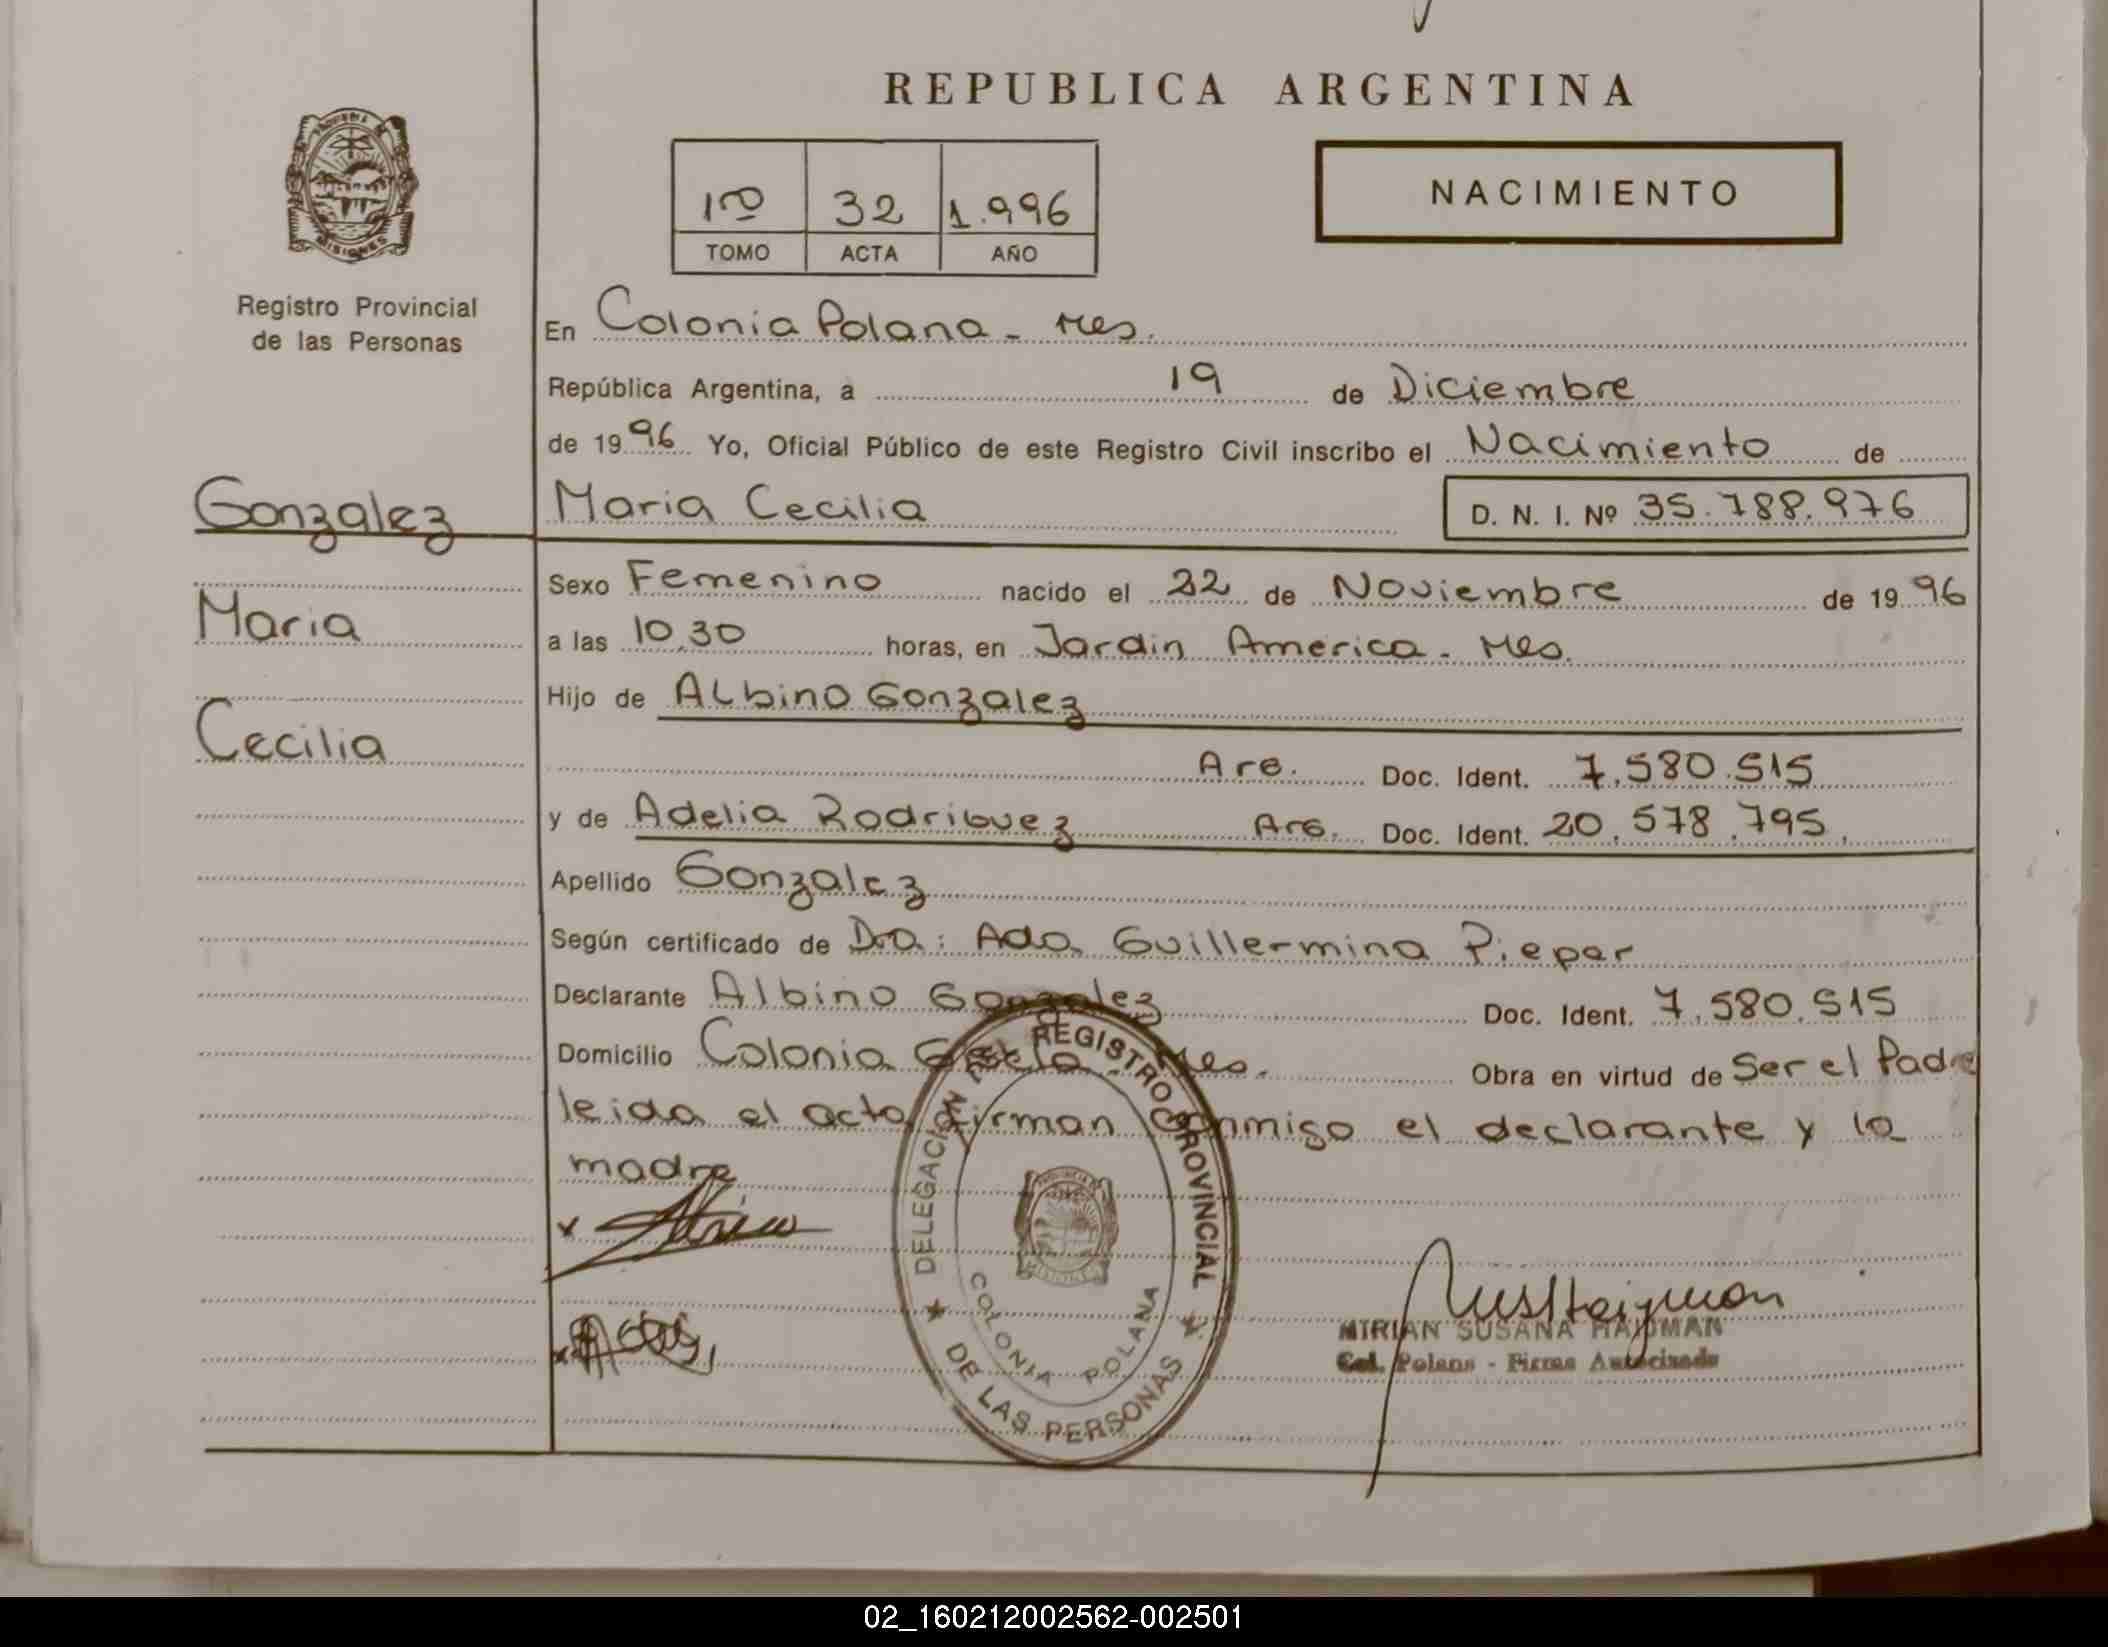 REPUBLICA ARGENTINA
PROVINCIA DE
MISIONES
Registro Provincial
de las Personas
1ro 32 1.996
TOMO ACTA AÑO
NACIMIENTO
En Colonia Polana - Mes.
República Argentina, a 19 de Diciembre
de 1996 Yo, Oficial Público de este Registro Civil inscribo el Nacimiento de
Gonzalez
Maria Cecilia D. N. I. Nº 35.788.976
Sexo Femenino nacido el 22 de Noviembre de 1996
Maria
a las 10,30 horas, en Jardin America - Mes.
Hijo de Albino Gonzalez
Cecilia
Arg. Doc. Ident. 7.580.515
y de Adelia Rodriguez Arg. Doc. Ident. 20.578.795.
Apellido Gonzalez
Según certificado de Dra: Ada Guillermina Pieper
Declarante Albino Gonzalez Doc. Ident. 7.580.515
Domicilio Colonia Mes. Obra en virtud de Ser el Padre
leida el acta, firman conmigo el declarante y la
madre
DELEGACION DEL REGISTRO PROVINCIAL
DE LAS PERSONAS
COLONIA POLANA
MISIONES
MIRIAN SUSANA HAIDMAN
Col. Polana - Firma Autorizada
02_160212002562-002501